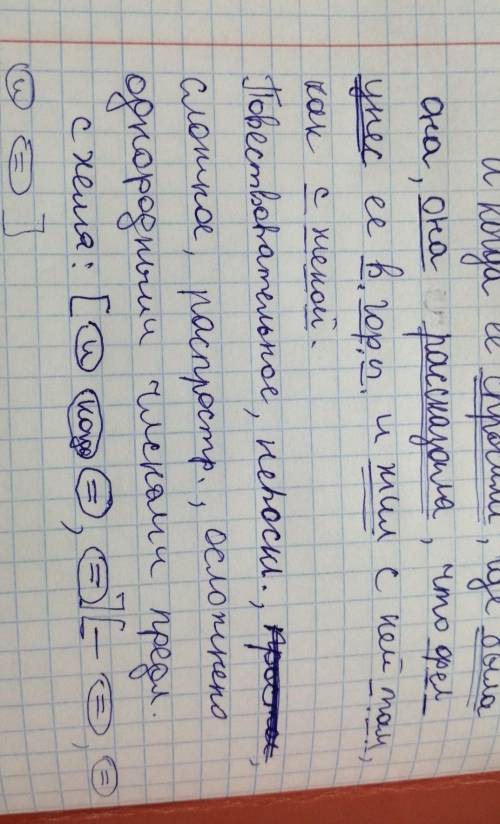 И когда ее спросили, где была
она, она рассказала, что орел
унес ее в горы и жил с ней там,
как с женой.
Повествовательное, невоскл.,
сложное, распростр., осложнено
однородными членами предл.
схема: [и когда =, =] [— =, =
и =]